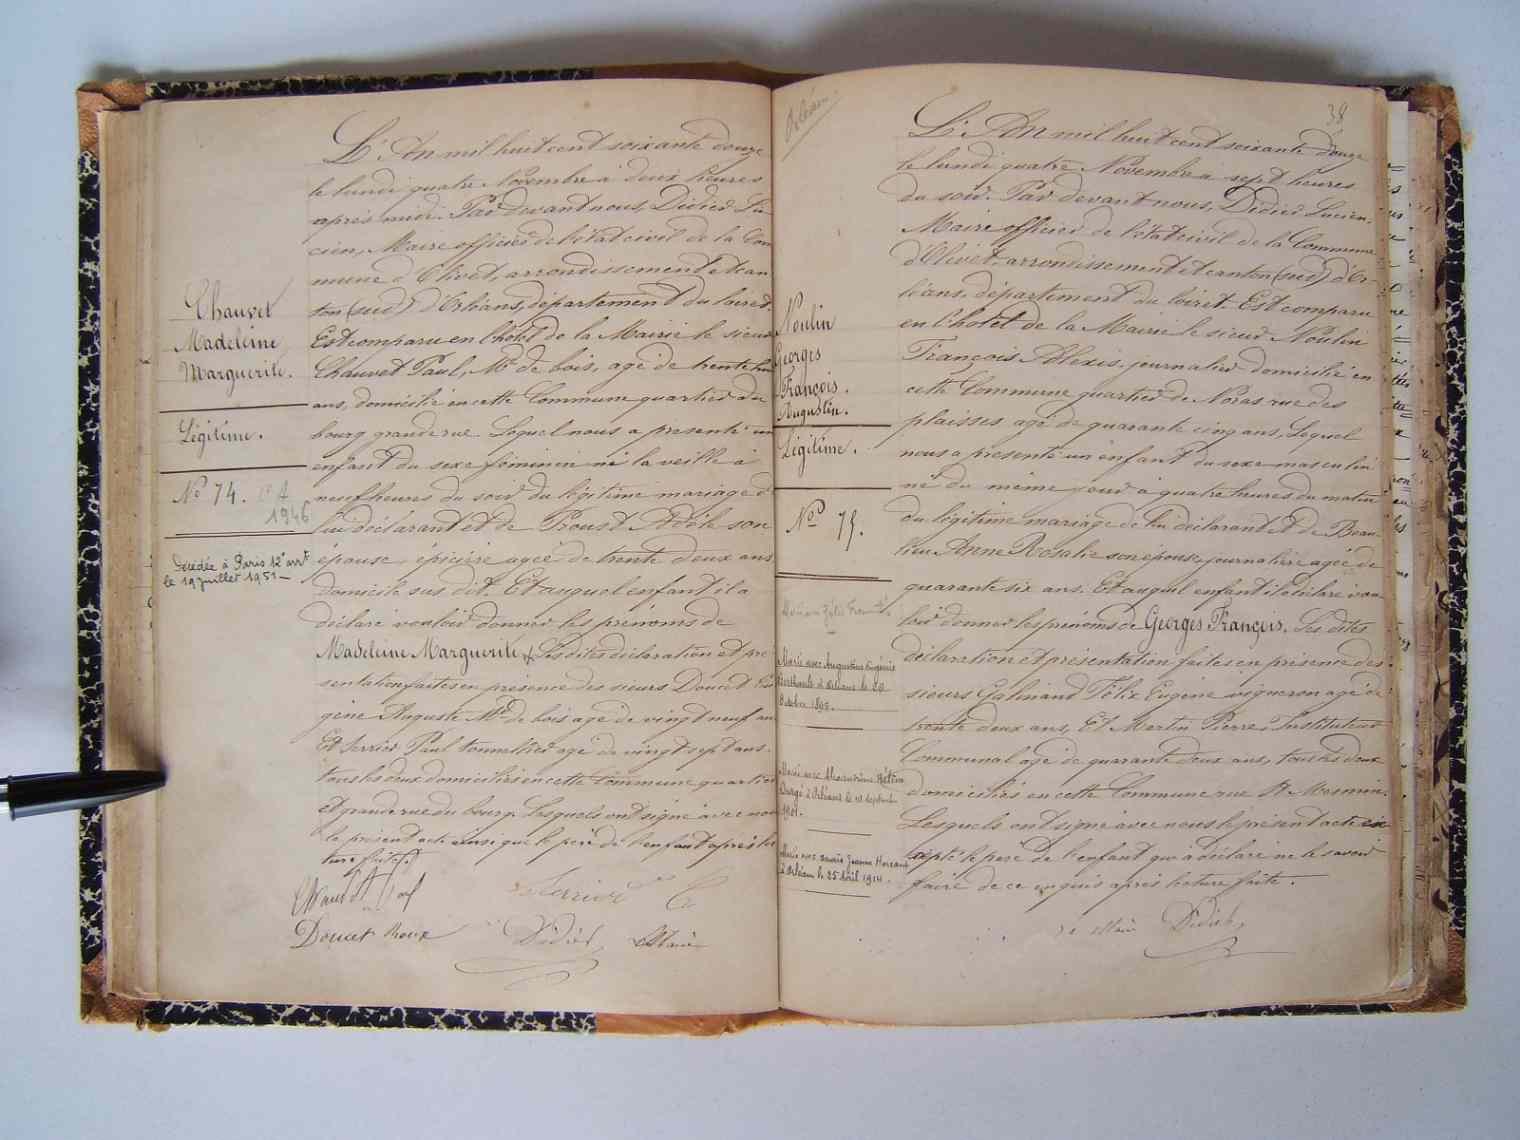 Chauvet
Madeleine
Marguerite.
Légitime.
No 74.
1946
Décédée à Paris 12e arrt
le 19 juillet 1951
L'An mil huit cent soixante douze
le lundi quatre Novembre à deux heures
après midi. Par devant nous, Didier Lu-
cien, Maire officier de l'état civil de la Com
mune d'Olivet, arrondissement et can
ton (sud) d'Orléans, département du Loiret.
Est comparu en l'hotel de la Mairie le sieur
Chauvet Paul, Md de bois, agé de trente
ans, domicilié en cette Commune quartier du
bourg grande rue. Lequel nous a presenté un
enfant du sexe féminin né la veille à
neuf heures du soir du légitime mariage de
lui déclarant et de Proust Adèle son
épouse, épicière agée de trente deux ans
domicile sus dit. Et auquel enfant il a
déclaré vouloir donner les prénoms de
Madeleine Marguerite. Les dites déclaration et pré
sentation faites en présence des sieurs Doucet Eu
gène Auguste Md de bois agé de vingt neuf ans
Et Serrier Paul tonnellier agé de vingt sept ans.
tous les deux domiciliés en cette Commune quartier
et grande rue du bourg. Lesquels ont signé avec nous
le présent acte ainsi que le père de l'enfant après lec
ture faite.
Doucet
Serrier
Didier, Maire
Orléans.
38
Noulin
Georges
François.
Augustin.
Légitime.
No 75.
Marié avec Augustine Eugénie
à Orléans le
Octobre
Marié avec
à Orléans le
1901.
Marié avec Jeanne
à Orléans le 25 Avril 1914.
L'An mil huit cent soixante douze
le lundi quatre Novembre à sept heures
du soir. Par devant nous, Didier Lucien,
Maire officier de l'état civil de la Commune
d'Olivet, arrondissement et canton (sud) d'Or-
léans, département du Loiret. Est comparu
en l'hotel de la Mairie le sieur Noulin
François Alexis, journalier domicilié en
cette Commune quartier de Noras rue des
plaisses agé de quarante cinq ans, Lequel
nous a presenté un enfant du sexe masculin
né du même jour à quatre heures du matin
du légitime mariage de lui déclarant et de Beau-
lieu Anne Rosalie son épouse, journalière agée de
quarante six ans. Et auquel enfant il a déclaré vou
loir donner les prénoms de Georges François. Les dites
déclaration et présentation faites en présence des
sieurs Galinand Félix Eugène vigneron agé de
trente deux ans, Et Martin Pierre, Instituteur
Communal agé de quarante deux ans, tous les deux
domiciliés en cette Commune rue St Mesmin.
Lesquels ont signé avec nous le présent acte ex
cepté le père de l'enfant qui a déclaré ne le savoir
faire de ce requis après lecture faite.
Le Maire Didier,